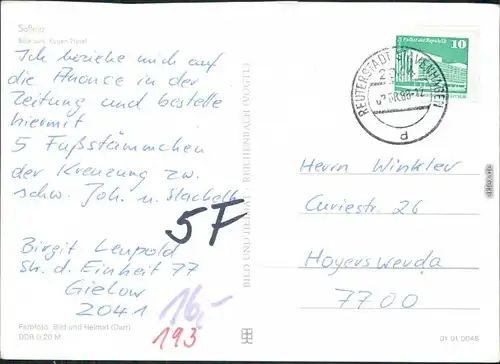 Saßnitz
Blick zum Rügen-Hotel
Ich beziehe mich auf
die Anonce in der
Zeitung und bestelle
hiermit
5 Fußstämmchen
der Kreuzung zw.
schw. Joh. u. Stachelb.
5F
Birgit Leupold
Str. d. Einheit 77
Gielow
2041
16,-
193
Farbfoto: Bild und Heimat (Darr)
DDR 0,20 M
BILD UND HEIMAT REICHENBACH (VOGTL)
REUTERSTADT STAVENHAGEN
d
10
Herrn Winkler
Curiestr. 26
Hoyerswerda
7700
01 01 0048